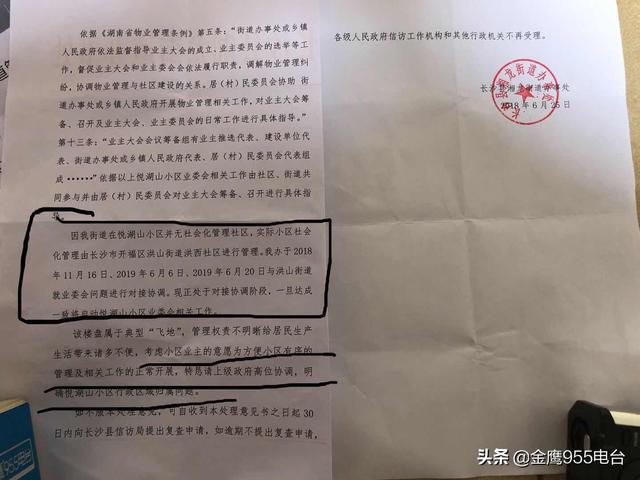 依据《湖南省物业管理条例》第五条：“街道办事处或乡镇
人民政府依法监督指导业主大会的成立、业主委员会的选举等工
作，督促业主大会和业主委员会依法履行职责，调解物业管理纠
纷，协调物业管理与社区建设的关系。居（村）民委员会协助 街
道办事处或乡镇人民政府开展物业管理相关工作，对业主大会筹
备、召开及业主大会、业主委员会的日常工作进行具体指导。”
第十三条：“业主大会会议筹备组有业主推选代表、建设单位代
表、街道办事处或乡镇人民政府代表、居（村）民委员会代表组
成······”依据以上悦湖山小区业委会相关工作由社区、街道共
同参与并由居（村）民委员会对业主大会筹备、召开进行具体指
导。
因我街道在悦湖山小区并无社会化管理社区，实际小区社会
化管理由长沙市开福区洪山街道洪西社区进行管理。我办于2018
年11月16日、2019年6月6日、2019年6月20日与洪山街道
就业委会问题进行对接协调。现正处于对接协调阶段，一旦达成
一致将启动悦湖山小区业委会相关工作。
该楼盘属于典型“飞地”，管理权责不明晰给居民生产
生活带来诸多不便，考虑小区业主的意愿为方便小区有序的
管理及相关工作的正常开展，特恳请上级政府高位协调，明
确悦湖山小区行政区域归属问题。
如不服本处理意见，可自收到本处理意见书之日起30
日内向长沙县信访局提出复查申请，如逾期不提出复查申请，
各级人民政府信访工作机构和其他行政机关不再受理。
长沙县湘龙街道办事处
2018年6月25日
955电台
头条 @金鹰955电台